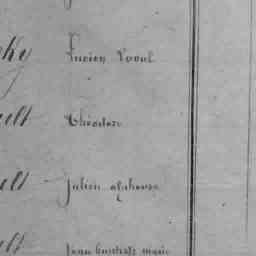 ky Lucien Raoul
ult Théodore
elt Julien alphonse
lt Jean baptiste marie